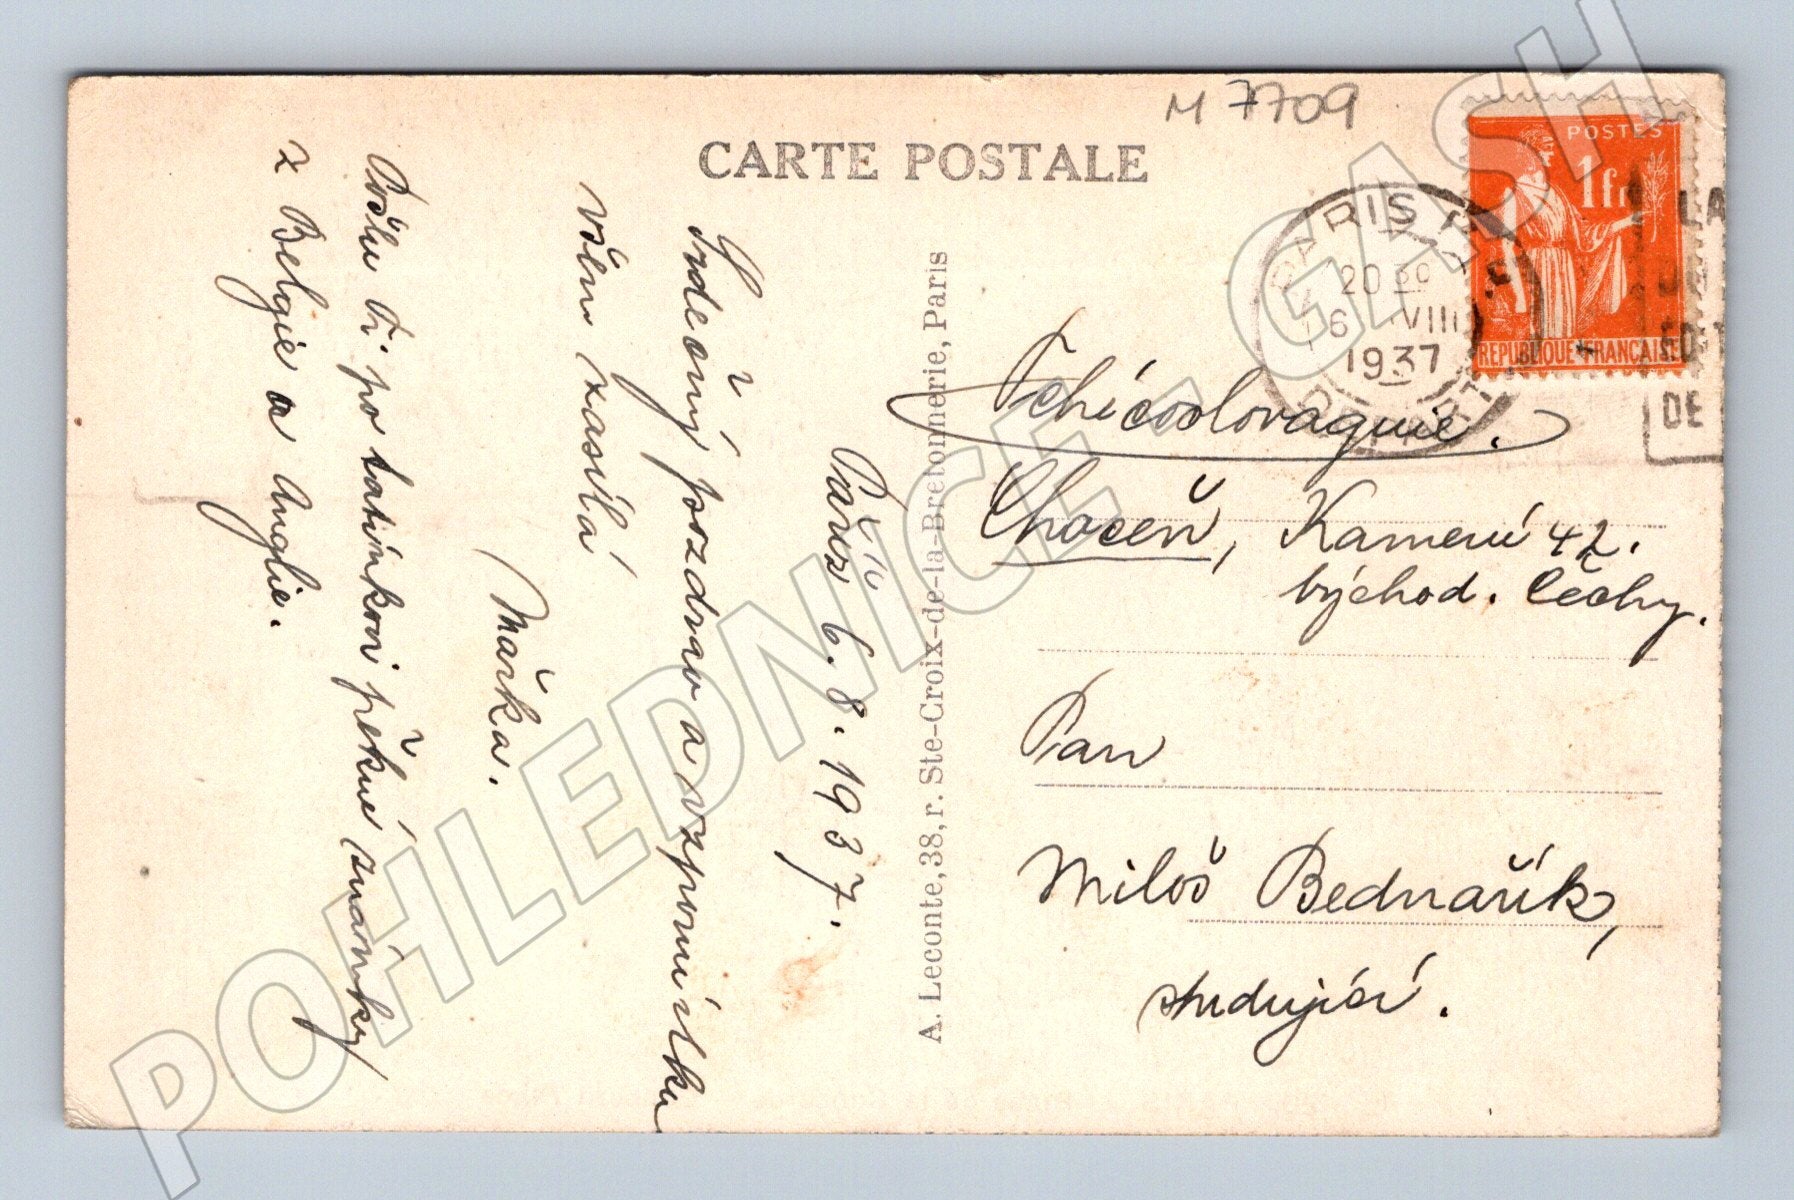 M 7709
CARTE POSTALE
POSTES
1 fr
REPUBLIQUE FRANÇAISE
PARIS
20 30
6 VIII
1937
DEPART
LA
DE
Tchécoslovaquie.
Choceň, Kamení 42.
východ. Čechy.
Pan
Miloš Bednařík,
studující.
A. Leconte, 38, r. Ste-Croix-de-la-Bretonnerie, Paris
Paříž 6. 8. 1937.
Srdečný pozdrav a vzpomínku
všem zasílá
Mařka.
Pošlu ti po tatínkovi pěkné známky
z Belgie a Anglie.
POHLEDNICE - GASH